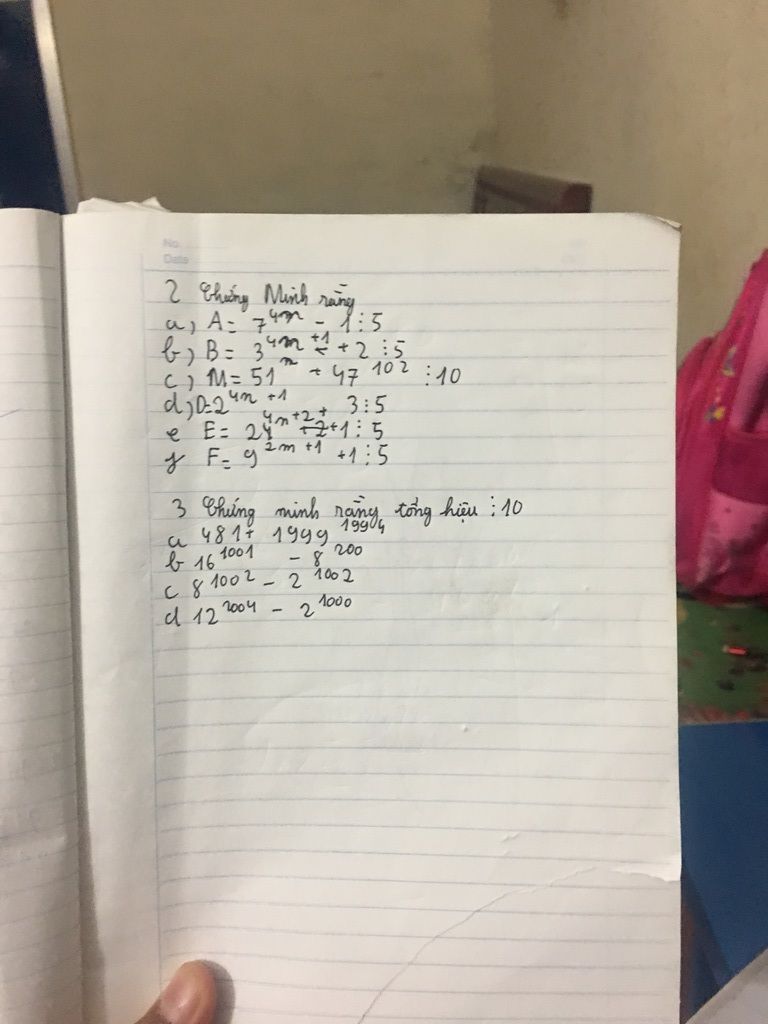 No
Date
2 Chứng Minh rằng
a, A = 7^4n - 1 ⋮ 5
b) B = 3^4n+1 + 2 ⋮ 5
c) M = 51^n + 47^102 ⋮ 10
d) D = 2^4n+1 + 3 ⋮ 5
e E = 24^4n+2 + 1 ⋮ 5
f F = 9^2n+1 + 1 ⋮ 5
3 Chứng minh rằng tổng hiệu ⋮ 10
a 481 + 1999^1994
b 16^1001 - 8^200
c 8^1002 - 2^1002
d 12^2004 - 2^1000